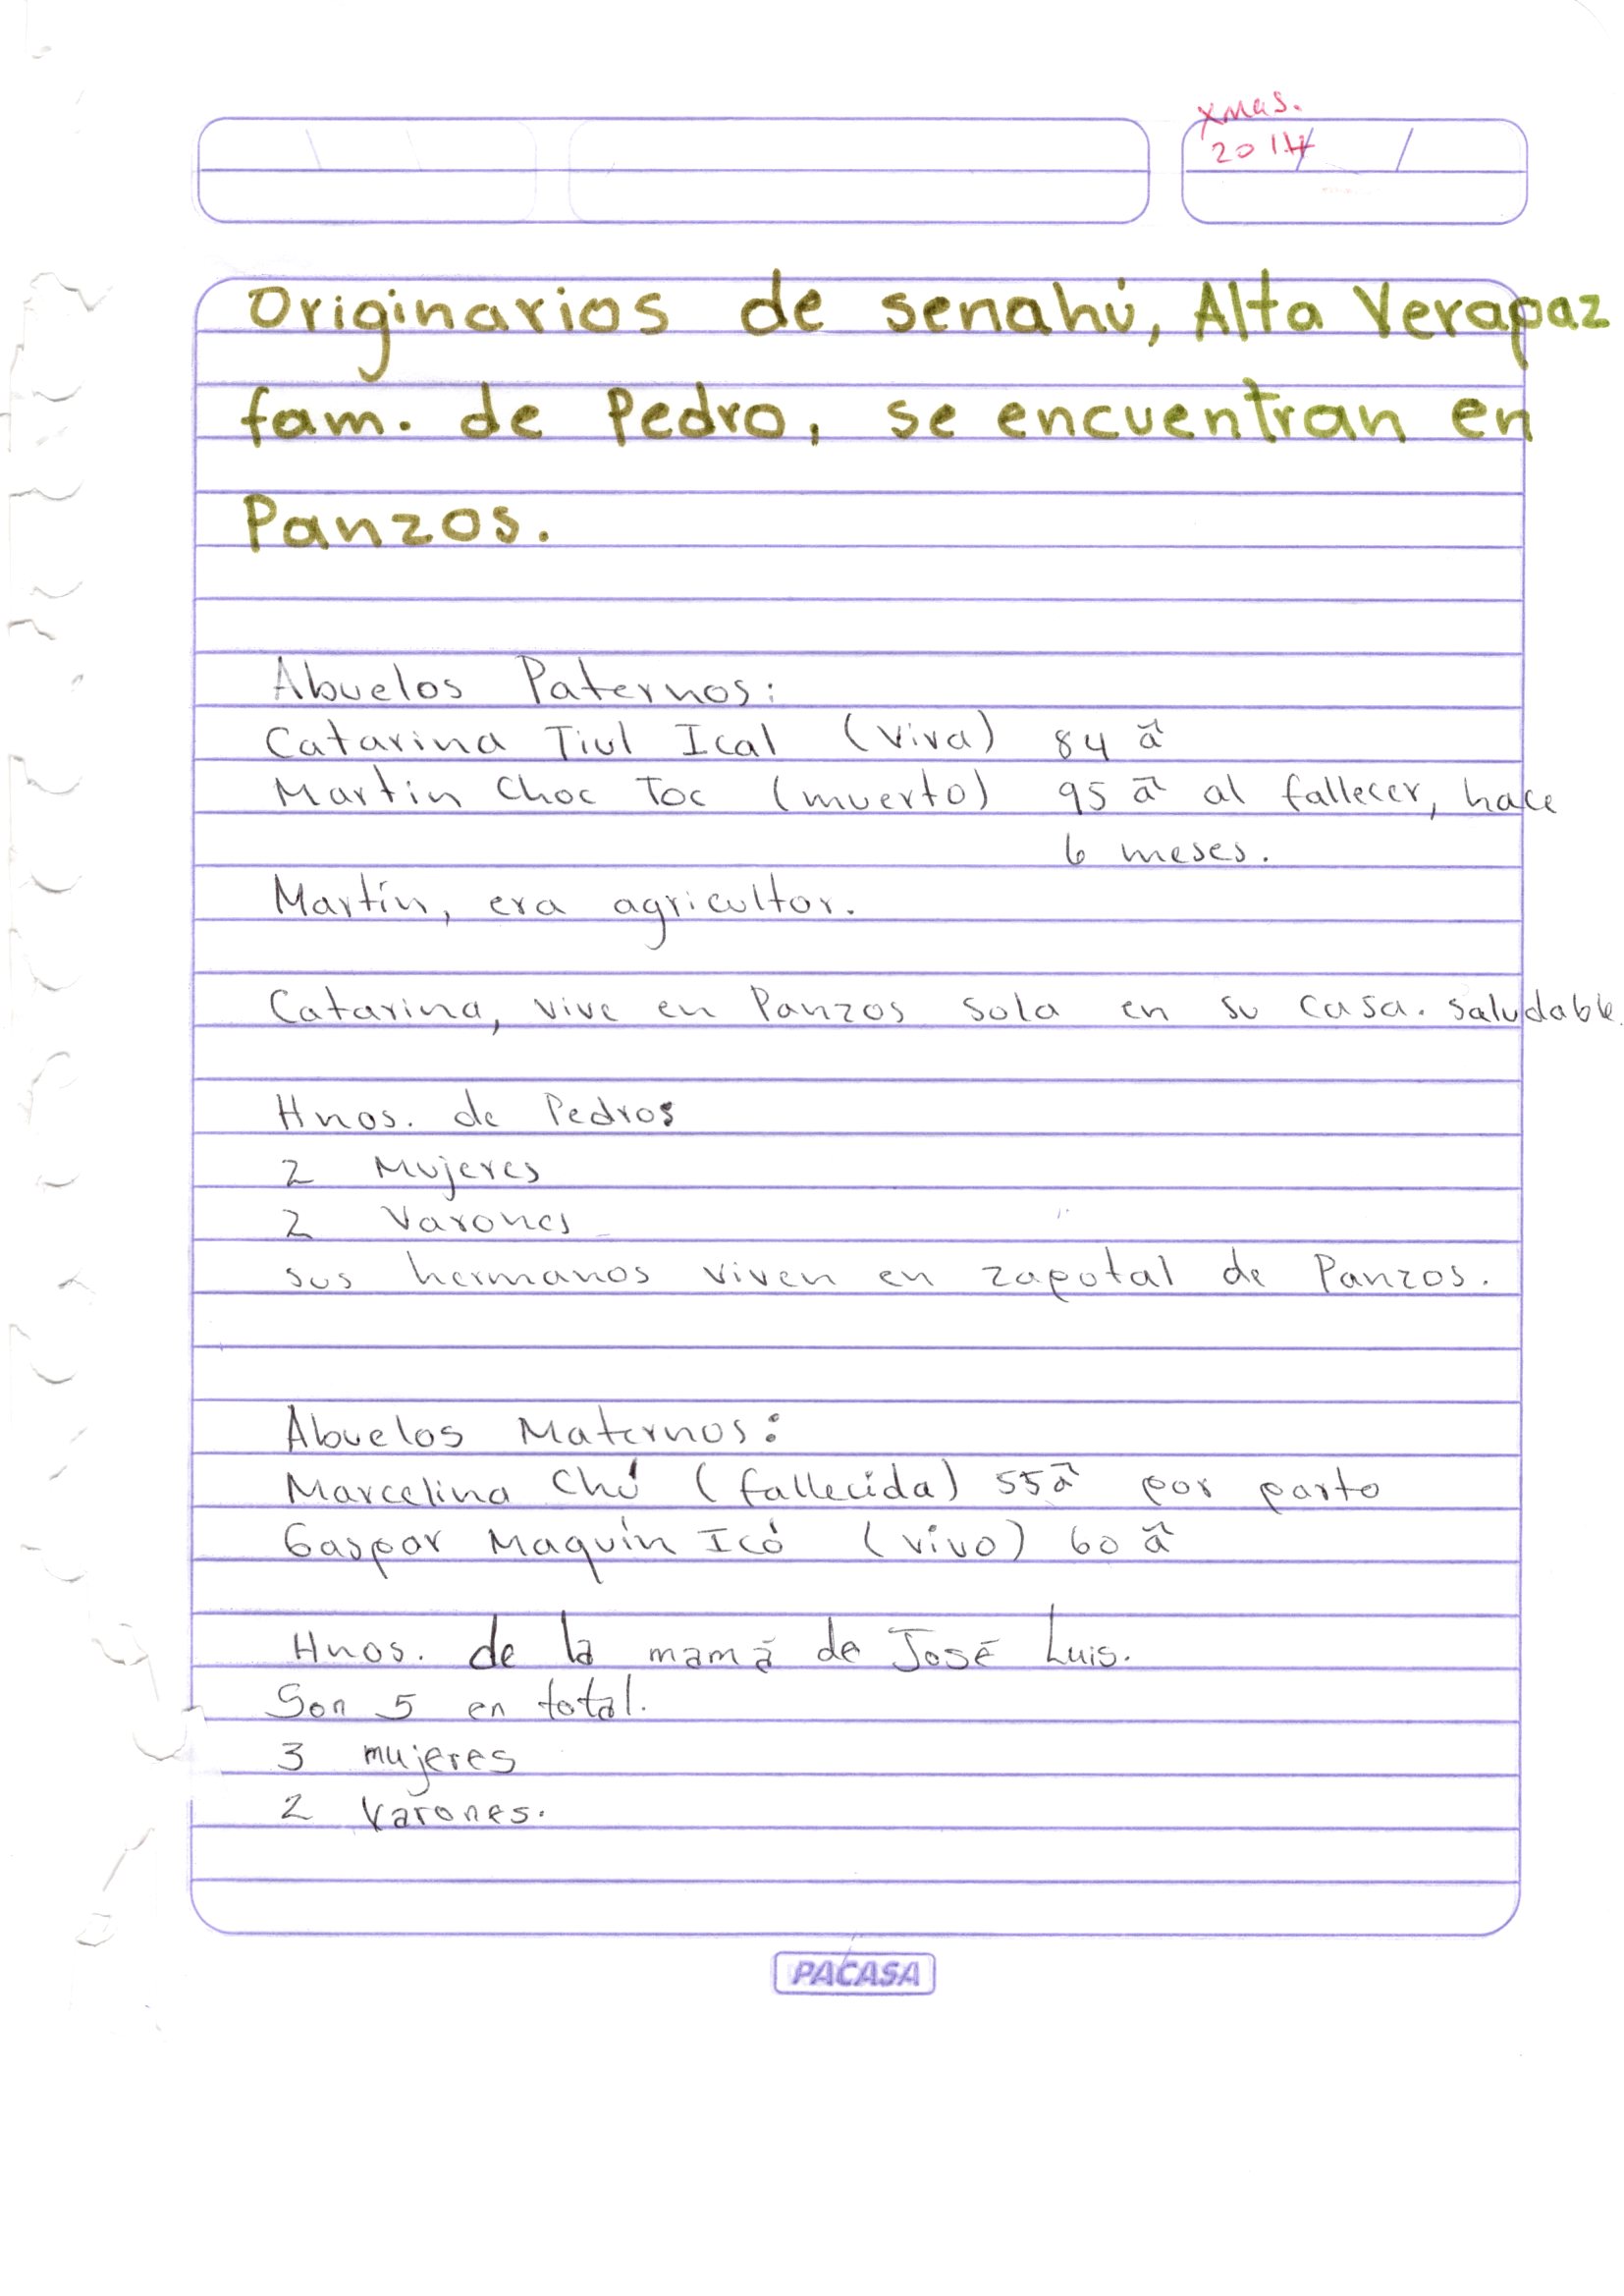 Xmas.
2014
Originarios de senahú, Alta Verapaz
fam. de Pedro, se encuentran en
Panzos.
Abuelos Paternos:
Catarina Tiul Ical (viva) 84 ã
Martin Choc Toc (muerto) 95 ã al fallecer, hace
6 meses.
Martín, era agricultor.
Catarina, vive en Panzos sola en su casa. saludable.
Hnos. de Pedro:
2 Mujeres
2 Varones
sus hermanos viven en zapotal de Panzos.
Abuelos Maternos:
Marcelina Chú (fallecida) 55 ã por parto
Gaspar Maquín Icó (vivo) 60 ã
Hnos. de la mamá de José Luis.
Son 5 en total.
3 mujeres
2 Varones.
PACASA